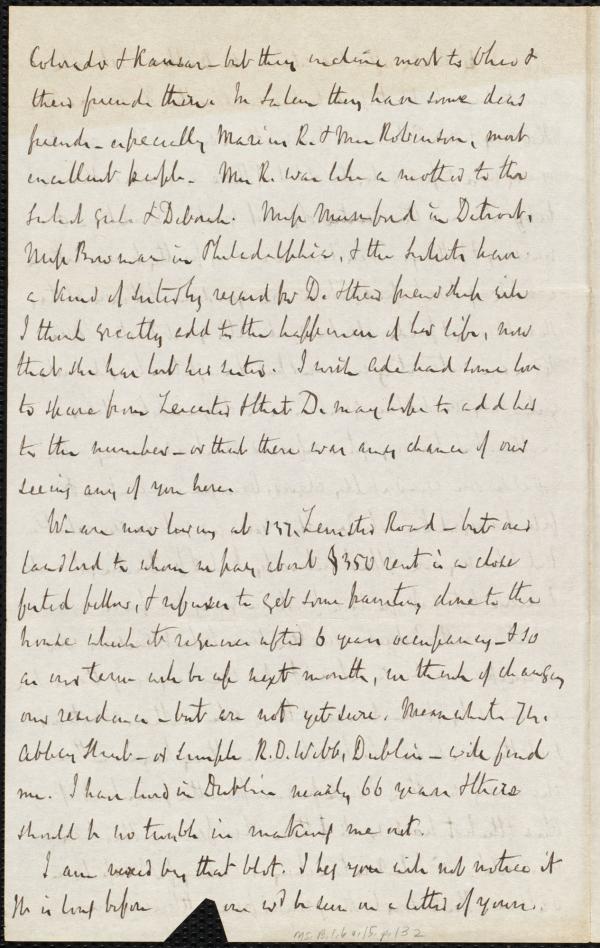 Colorado & Kansas - but they incline most to Ohio &
their friends there. In Salem they have some dear
friends - especially Marius R. & Mrs Robinson, most
excellent people. Mrs R. was like a mother to the
Select girls & Deborah. Miss Mumford in Detroit,
Miss Bowman in Philadelphia, & the Selects have
a kind of sisterly regard for D. & their friendship will
I think greatly add to the happiness of her life, now
that she has lost her sister. I wish Ade had some love
to spare from Leicester & that D. may hope to add her
to the number - or that there was any chance of our
seeing any of you here.
We are now living at 137, Leinster Road - but our
landlord to whom we pay about $350 rent is a close
fisted fellow, & refuses to get some painting done to the
house which it requires after 6 years occupancy - & so
as our term will be up next month, we think of changing
our residence - but are not yet sure. Meanwhile 74.
Abbey Street - or simple R.D. Webb, Dublin - will find
me. I have lived in Dublin nearly 66 years & there
should be no trouble in making me out.
I am vexed by that blot. I beg you will not notice it
It is long before one wd be seen on a letter of yours.
Ms. B.1.6 v.15, p.132